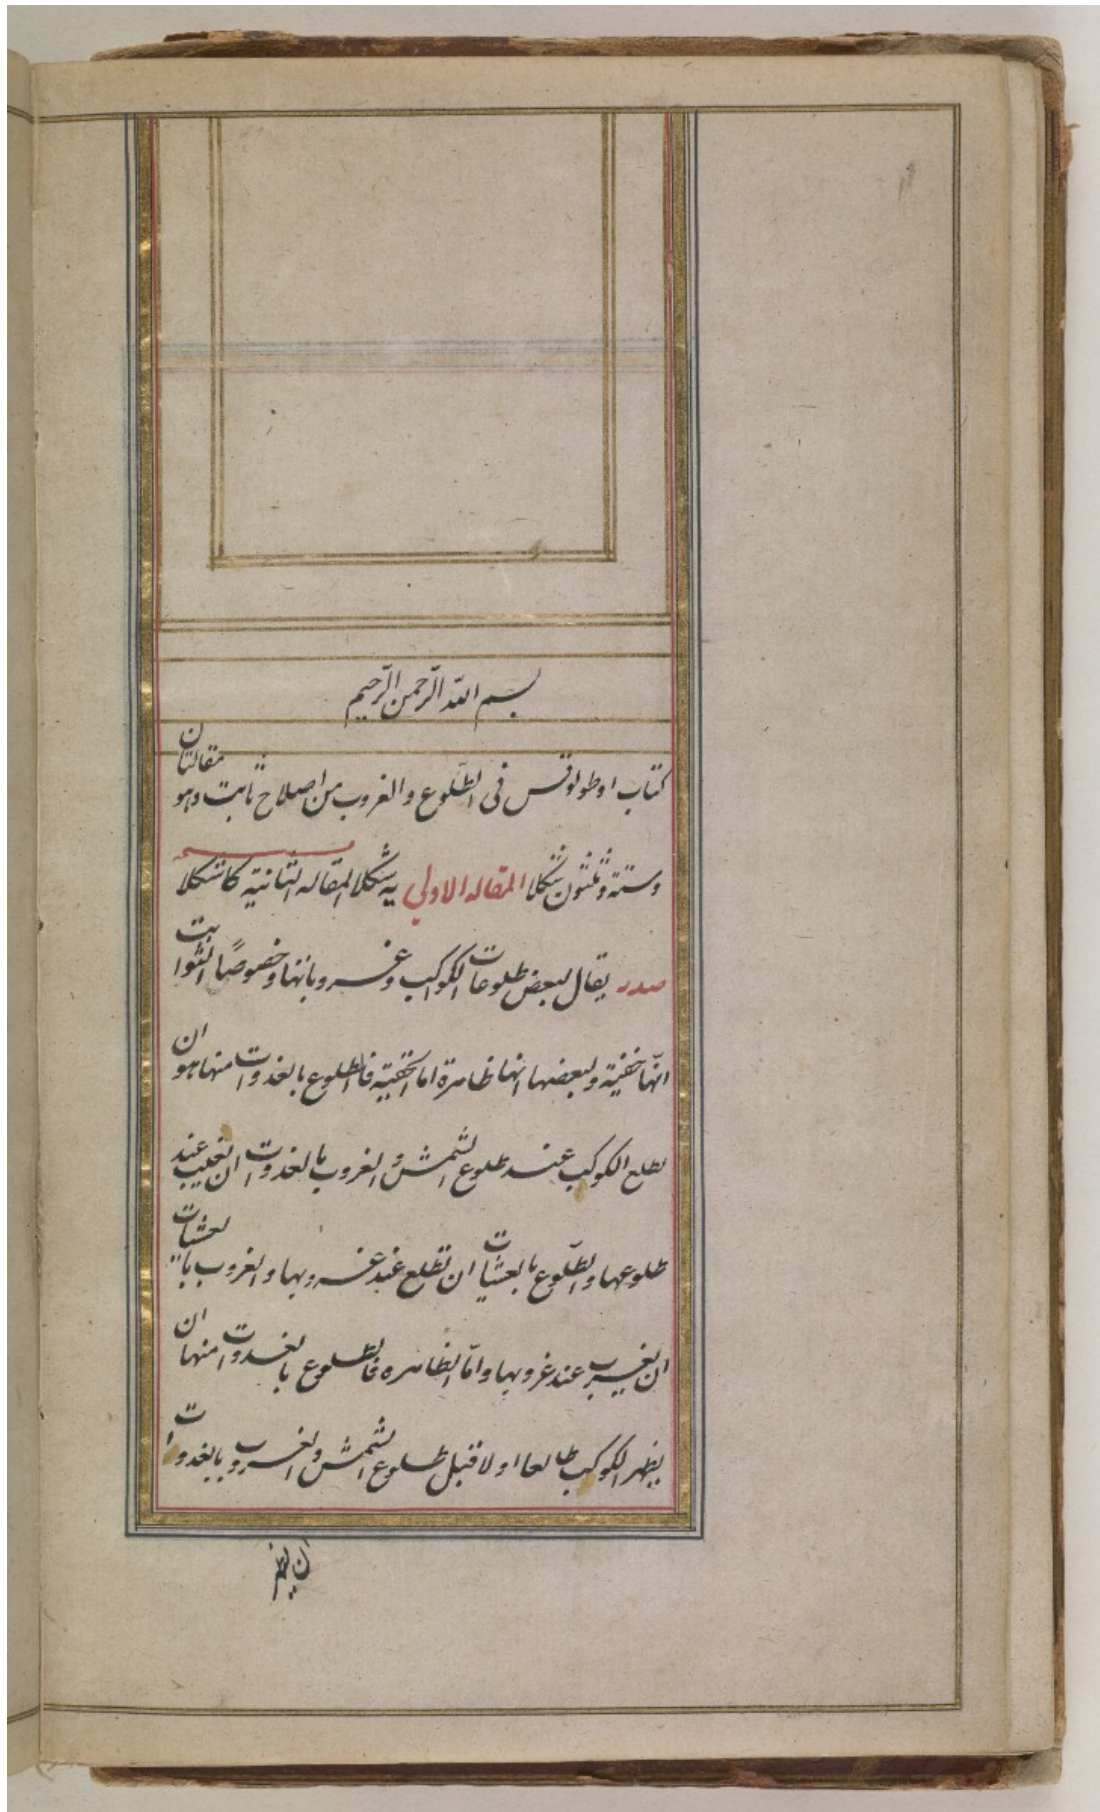 بسم الله الرّحمن الرّحيم
كتاب اوطولوقس فى الطّلوع والغروب من اصلاح ثابت وهو مقالتان
وستة وثلثون شكلا المقاله الاولي يه شكلا المقاله الثانية كا شكلا
صدر يقال لبعض طلوعات الكواكب وغروباتها وخصوصًا الثوابت
انّها خفية ولبعضها انها ظاهرة اما الخفية فالطلوع بالغدوات منها هو ان
يطلع الكوكب عند طلوع الشمس والغروب بالغدوات ان يغيب عند
طلوعها والطّلوع بالعشيات ان تطلع عند غروبها والغروب بالعشيات
ان يغرب عند غروبها وامّا الظاهره فالطلوع بالغدوات منها ان
يظهر الكوكب طالعا اولا قبل طلوع الشمس والغروب بالغدوات
ان يظهر